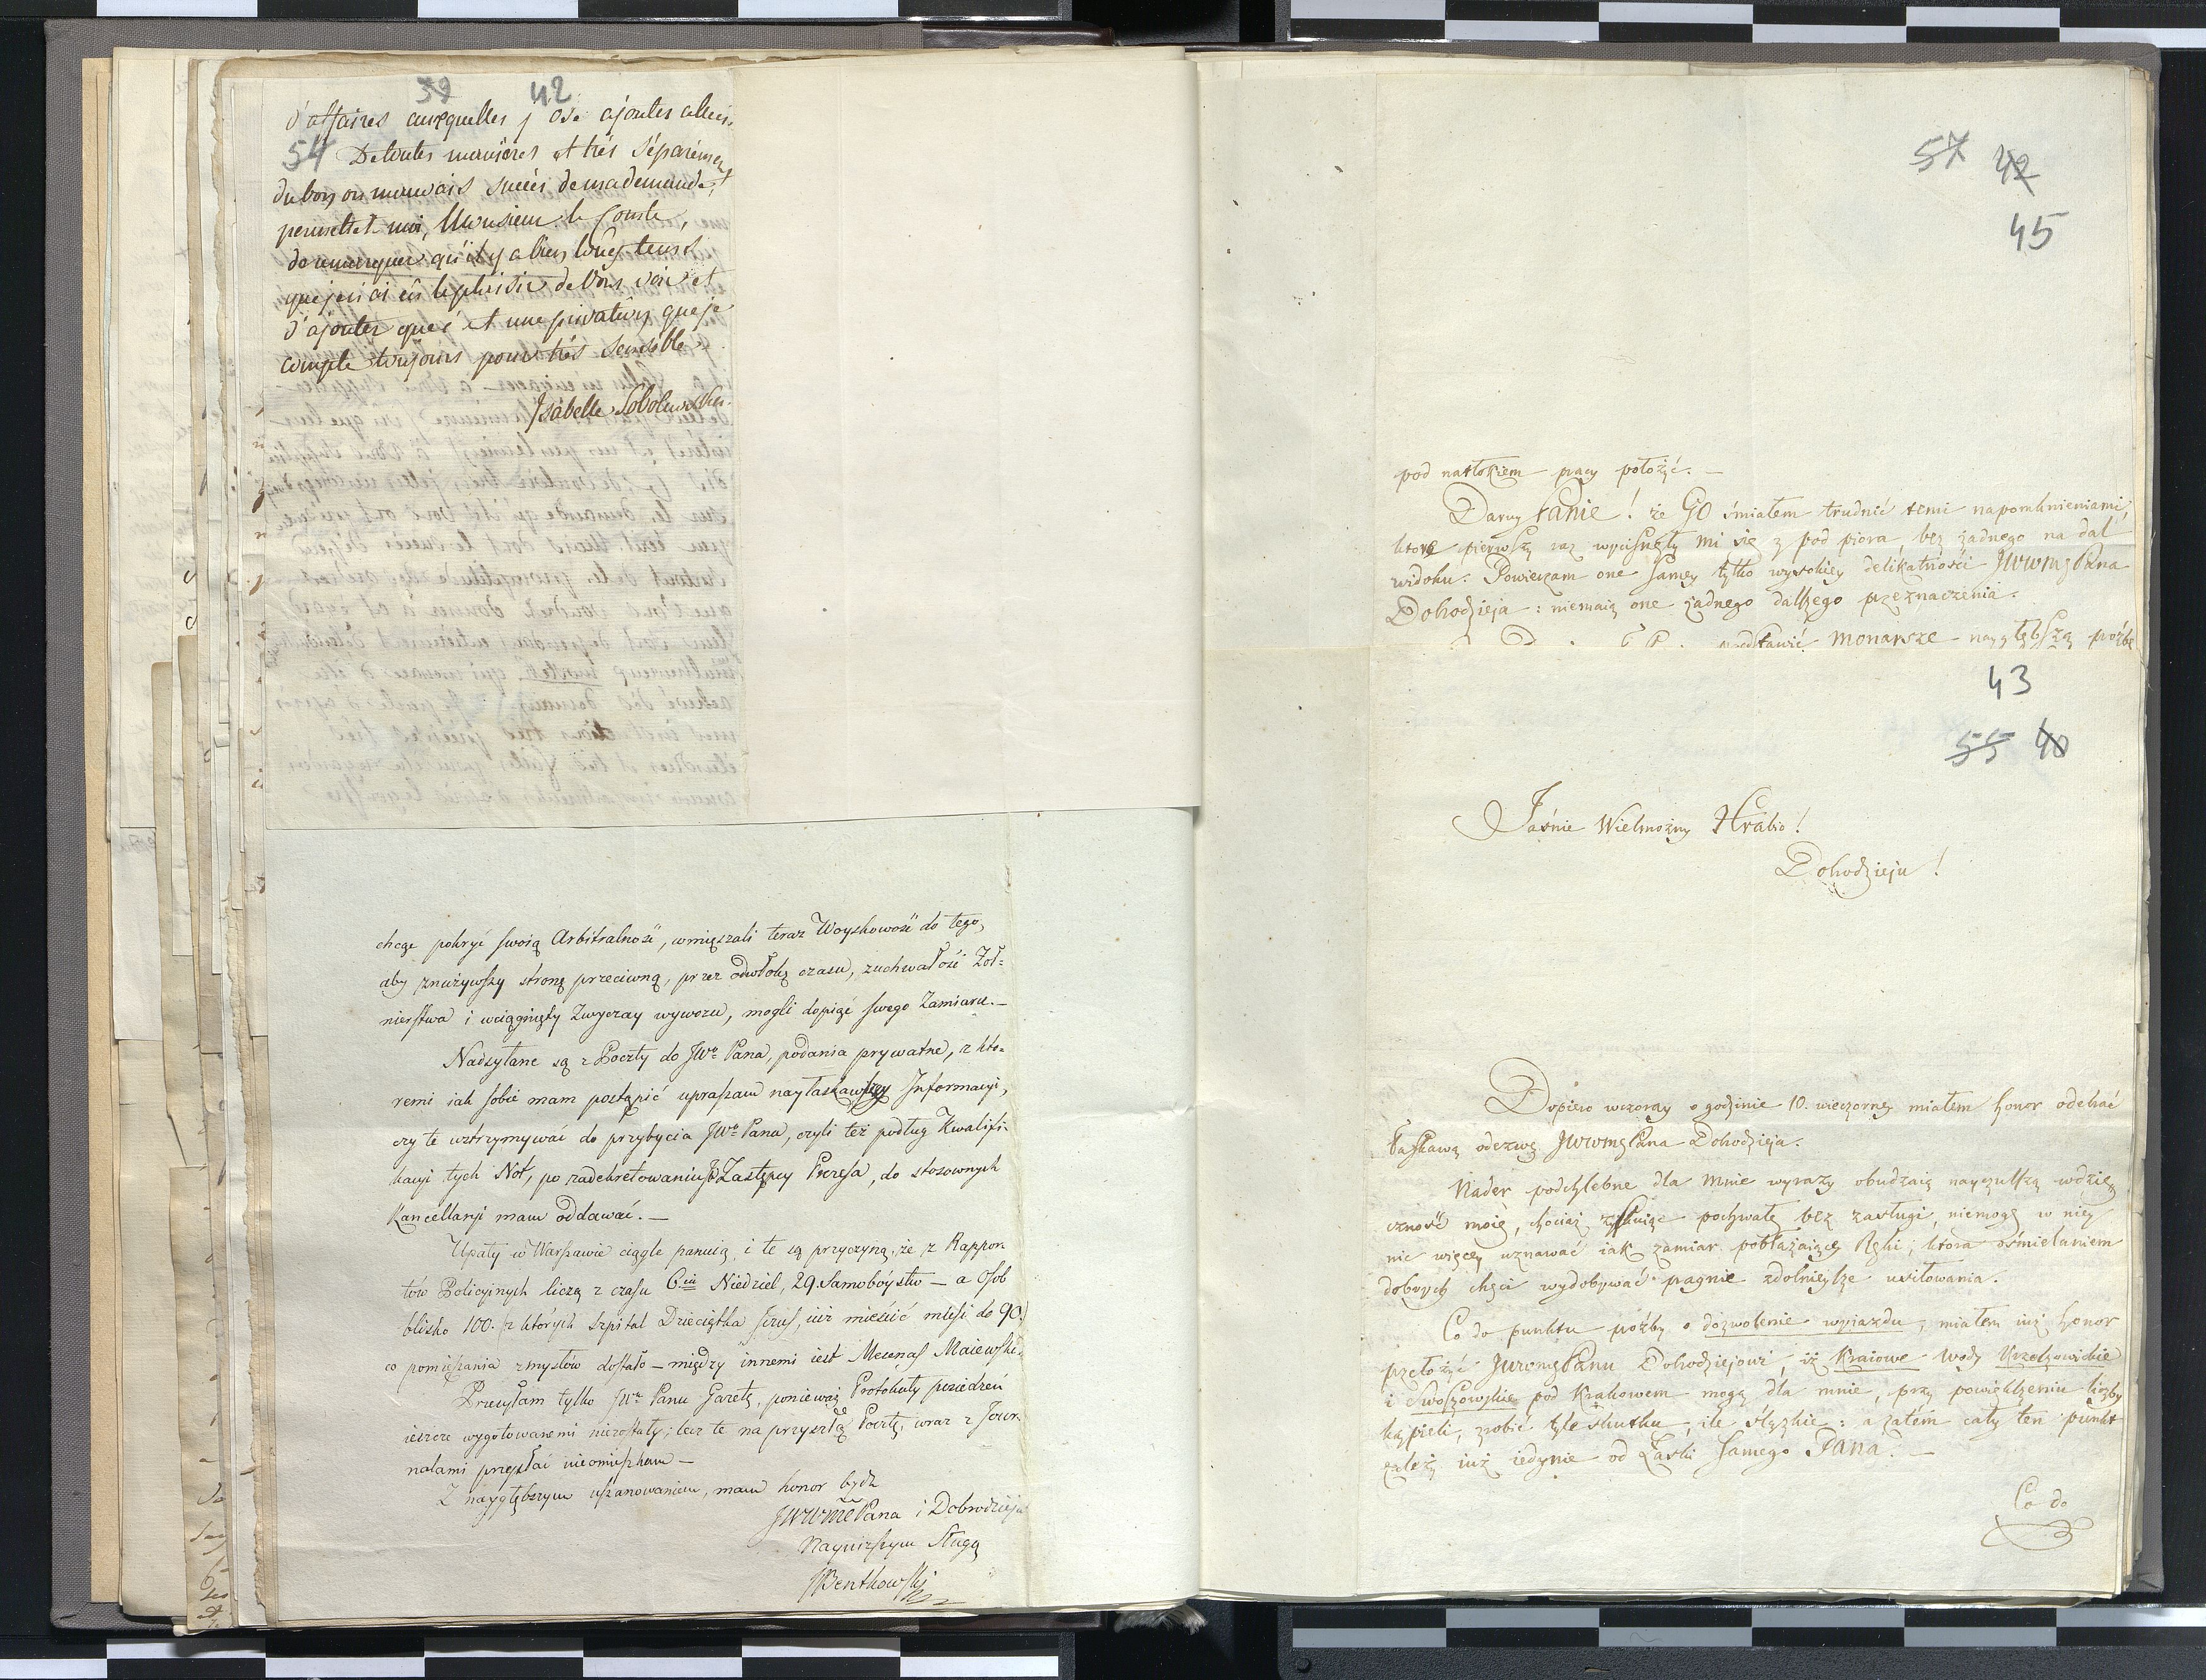 39 42
d'affaires auxquelles j'ose ajouter celui.
54 De toutes manières et très séparément
du bon ou mauvais succès de ma demande,
permettet moi, Monsieur le Comte,
de remarquer qu'il y a bien longtems
que je n'ai eû le plaisir de Vous voir et
d'ajouter que c'et une privation que je
compte toujours pour très sensible.
Isabelle Sobolewska.
chcąc pokryć swoią Arbitralność, wmięszali teraz Woyskowość do tego,
aby znużywszy stronę przeciwną, przez odwłokę czasu, zuchwałość Żoł=
nierstwa i wciągnięty Zwyczay wywozu, mogli dopiąć swego Zamiaru.—
Nadsyłane są z Poczty do JWo Pana, podania prywatne, z któ=
remi iak sobie mam postąpić upraszam nayłaskawszey Informacyi,
czy te wstrzymywać do przybycia JWo Pana, czyli też podług Kwalifi=
kacyi tych Not, po zadekretowaniu Zastępcy Prezesa, do stosownych
Kancellaryi mam oddawać.—
Upały w Warszawie ciągle panuią, i te są przyczyną, że z Rappor
tów Policyinych liczą z czasu 6ciu Niedziel, 29. Samobóystw — a Osob
blisko 100. (z których Szpital Dzieciątka Jezus, iuż mieścić musi do 90.)
co pomięszania zmysłów dostało — między innemi iest Mecenas Maiewski.
Przesyłam tylko JWo Panu Gazetę, ponieważ Protokuły posiedzeń
ieszcze wygotowanemi niezostały; lecz te na przyszłą Pocztę, wraz z Jour-
nalami przesłać nieomieszkam —
Z naygłębszym uszanowaniem, mam honor bydz
JWWmć Pana i Dobrodzieja
Nayniższym Sługą
Bentkowski
57 42
45
pod natłokiem pracy położyć. —
Daruy Panie! że GO śmiałem trudnić temi napomknieniami,
które pierwszy raz wycisnęły mi się z pod pióra, bez żadnego na dal
widoku. Powierzam one samey tylko wysokiey delikatności JWWmg Pana
Dobodzieja: niemaią one żadnego dalszego przeznaczenia.
przedstawić Monarsze naygłębszą proźbę
43
55 40
Jaśnie Wielmożny Hrabio!
Dobodzieju!
Dopiero wczoray o godzinie 10. wieczorney miałem honor odebrać
łaskawą odezwę JWWmg Pana Dobodzieja.
Nader podchlebne dla mnie wyrazy obudzaią nayczulszą wdzię
czność moię, chociaż zyskuiąc pochwałę bez zasługi, niemogę w niey
nic więcey uznawać iak zamiar pobłażaiącey Ręki, która ośmielaniem
dobrych chęci wydobywać pragnie zdolnieysze usiłowania.
Co do punktu proźby o dozwolenie wyiazdu, miałem iuż honor
przełożyć JWWmg Panu Dobodziejowi, iż Kraiowe Wody Krzeszowickie
i Swoszowskie pod Krakowem mogą dla mnie, przy powiększeniu liczby
kąpieli, zrobić tyle skutku, ile Slązkie: a zatém cały ten punkt
zależy iuż iedynie od Łaski samego Pana. —
Co do